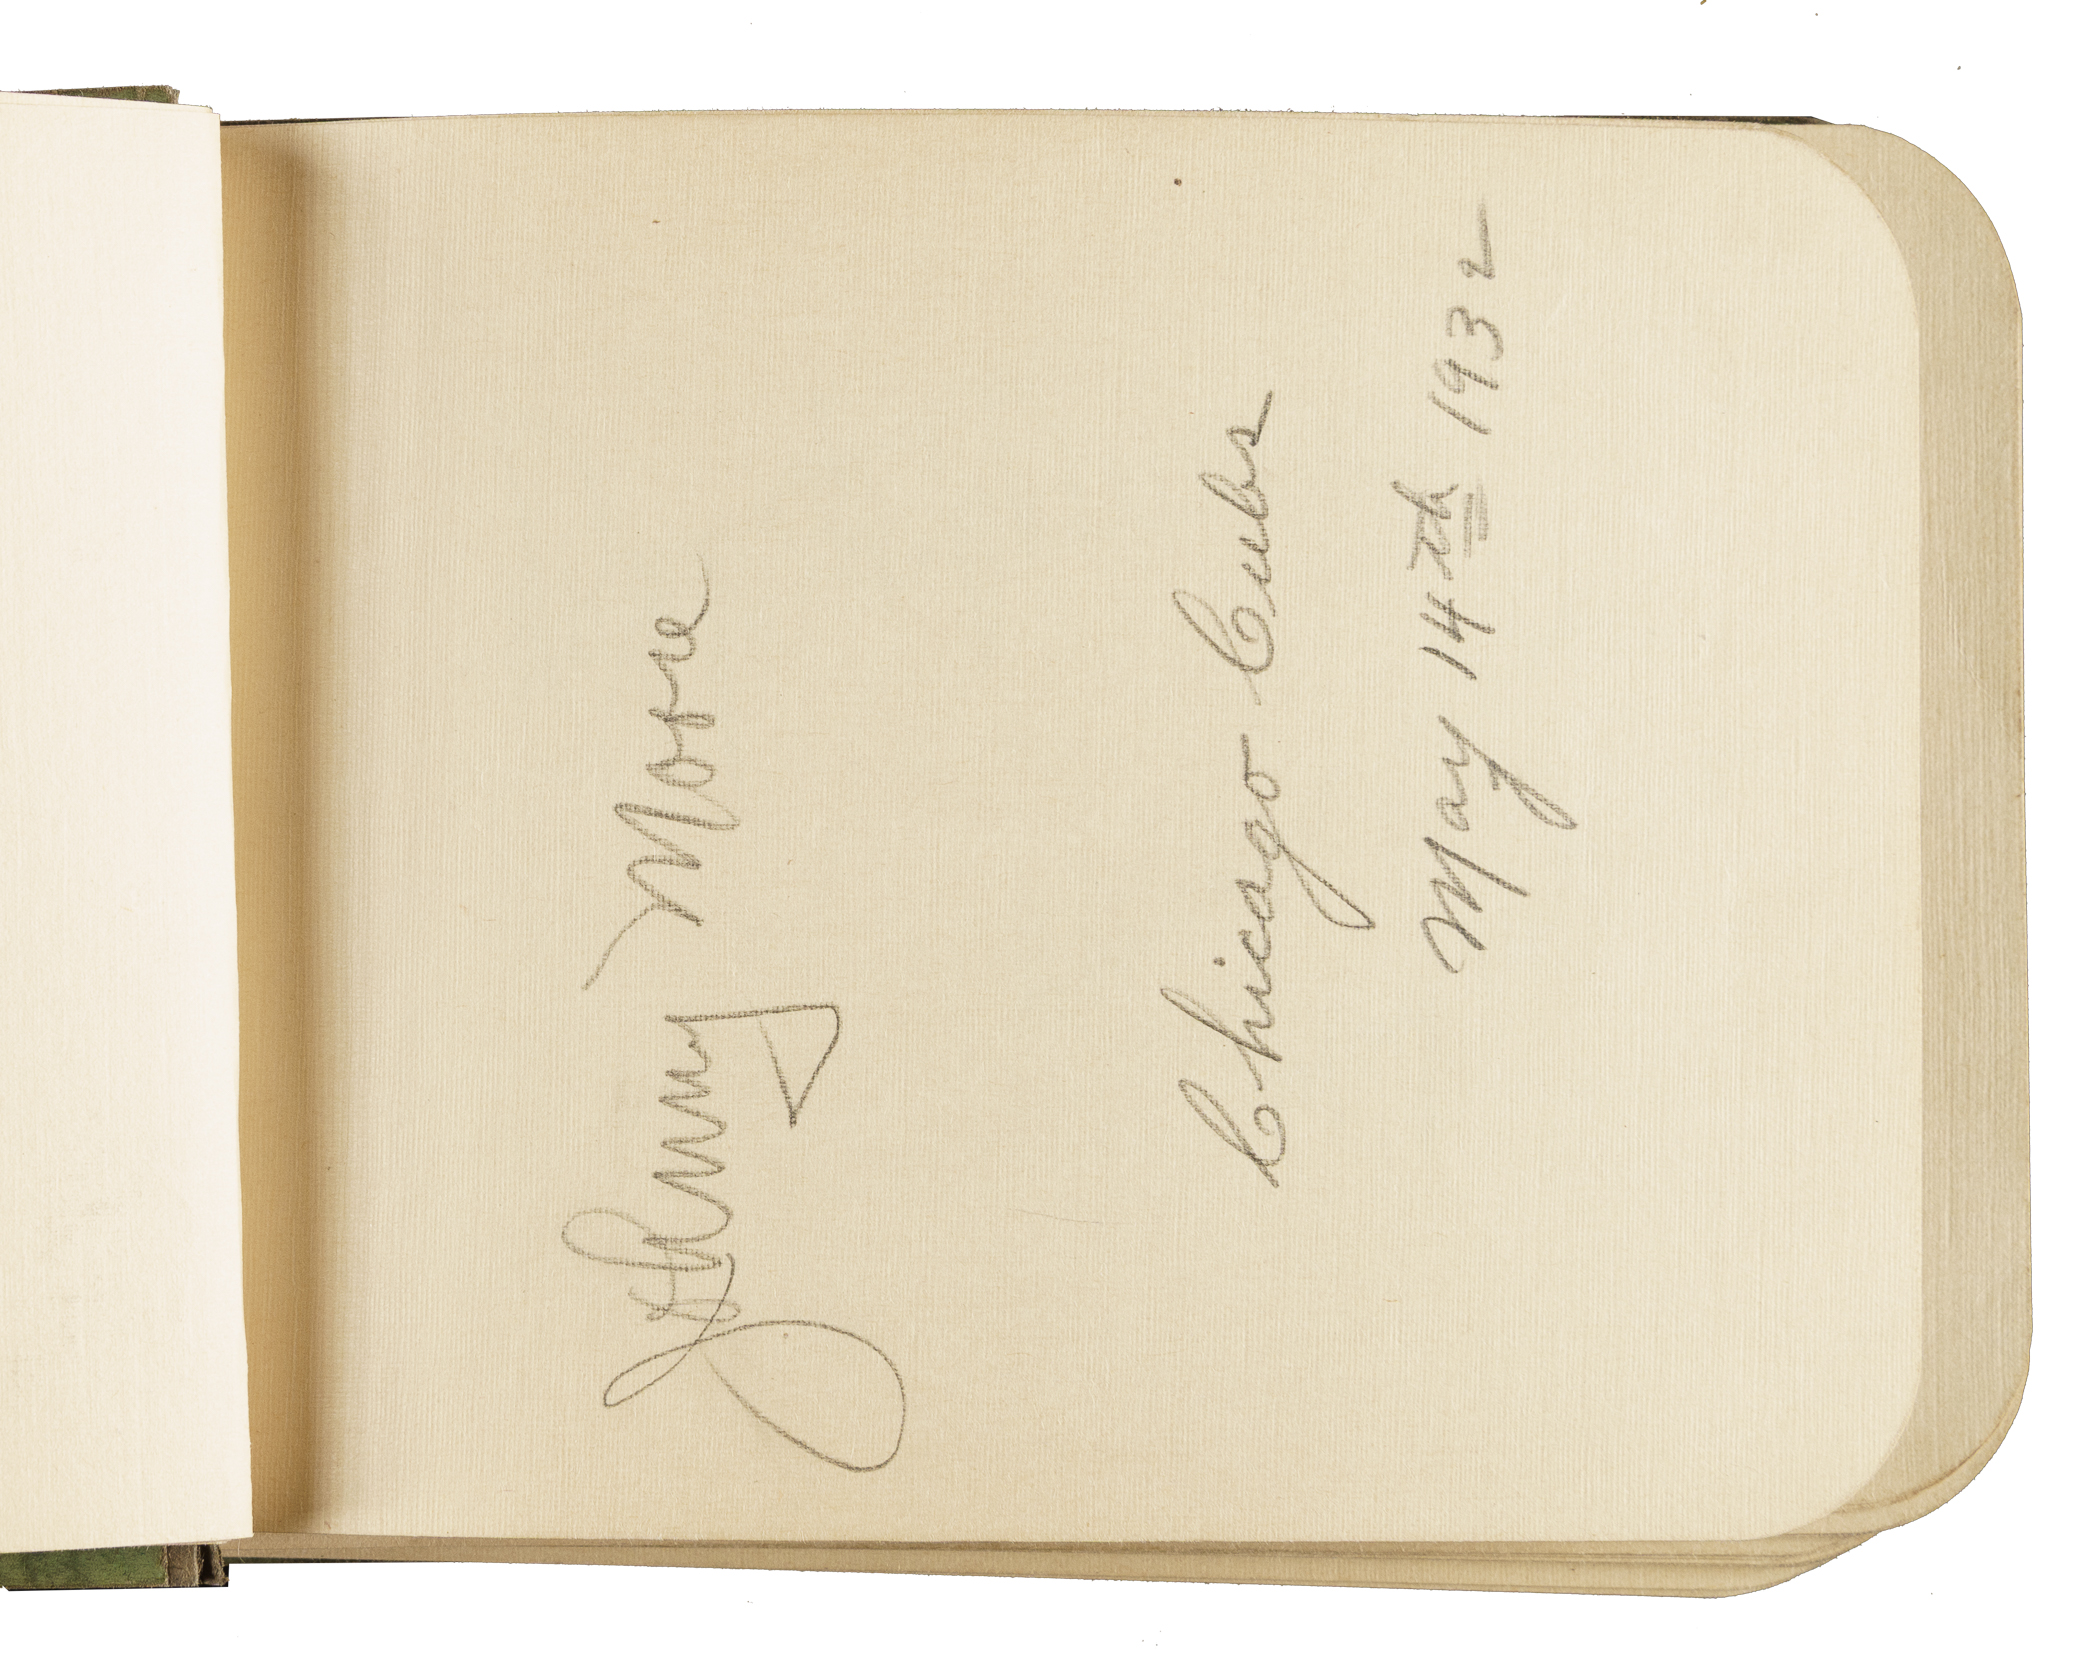 Johnny Moore
Chicago Cubs
May 14th 1932